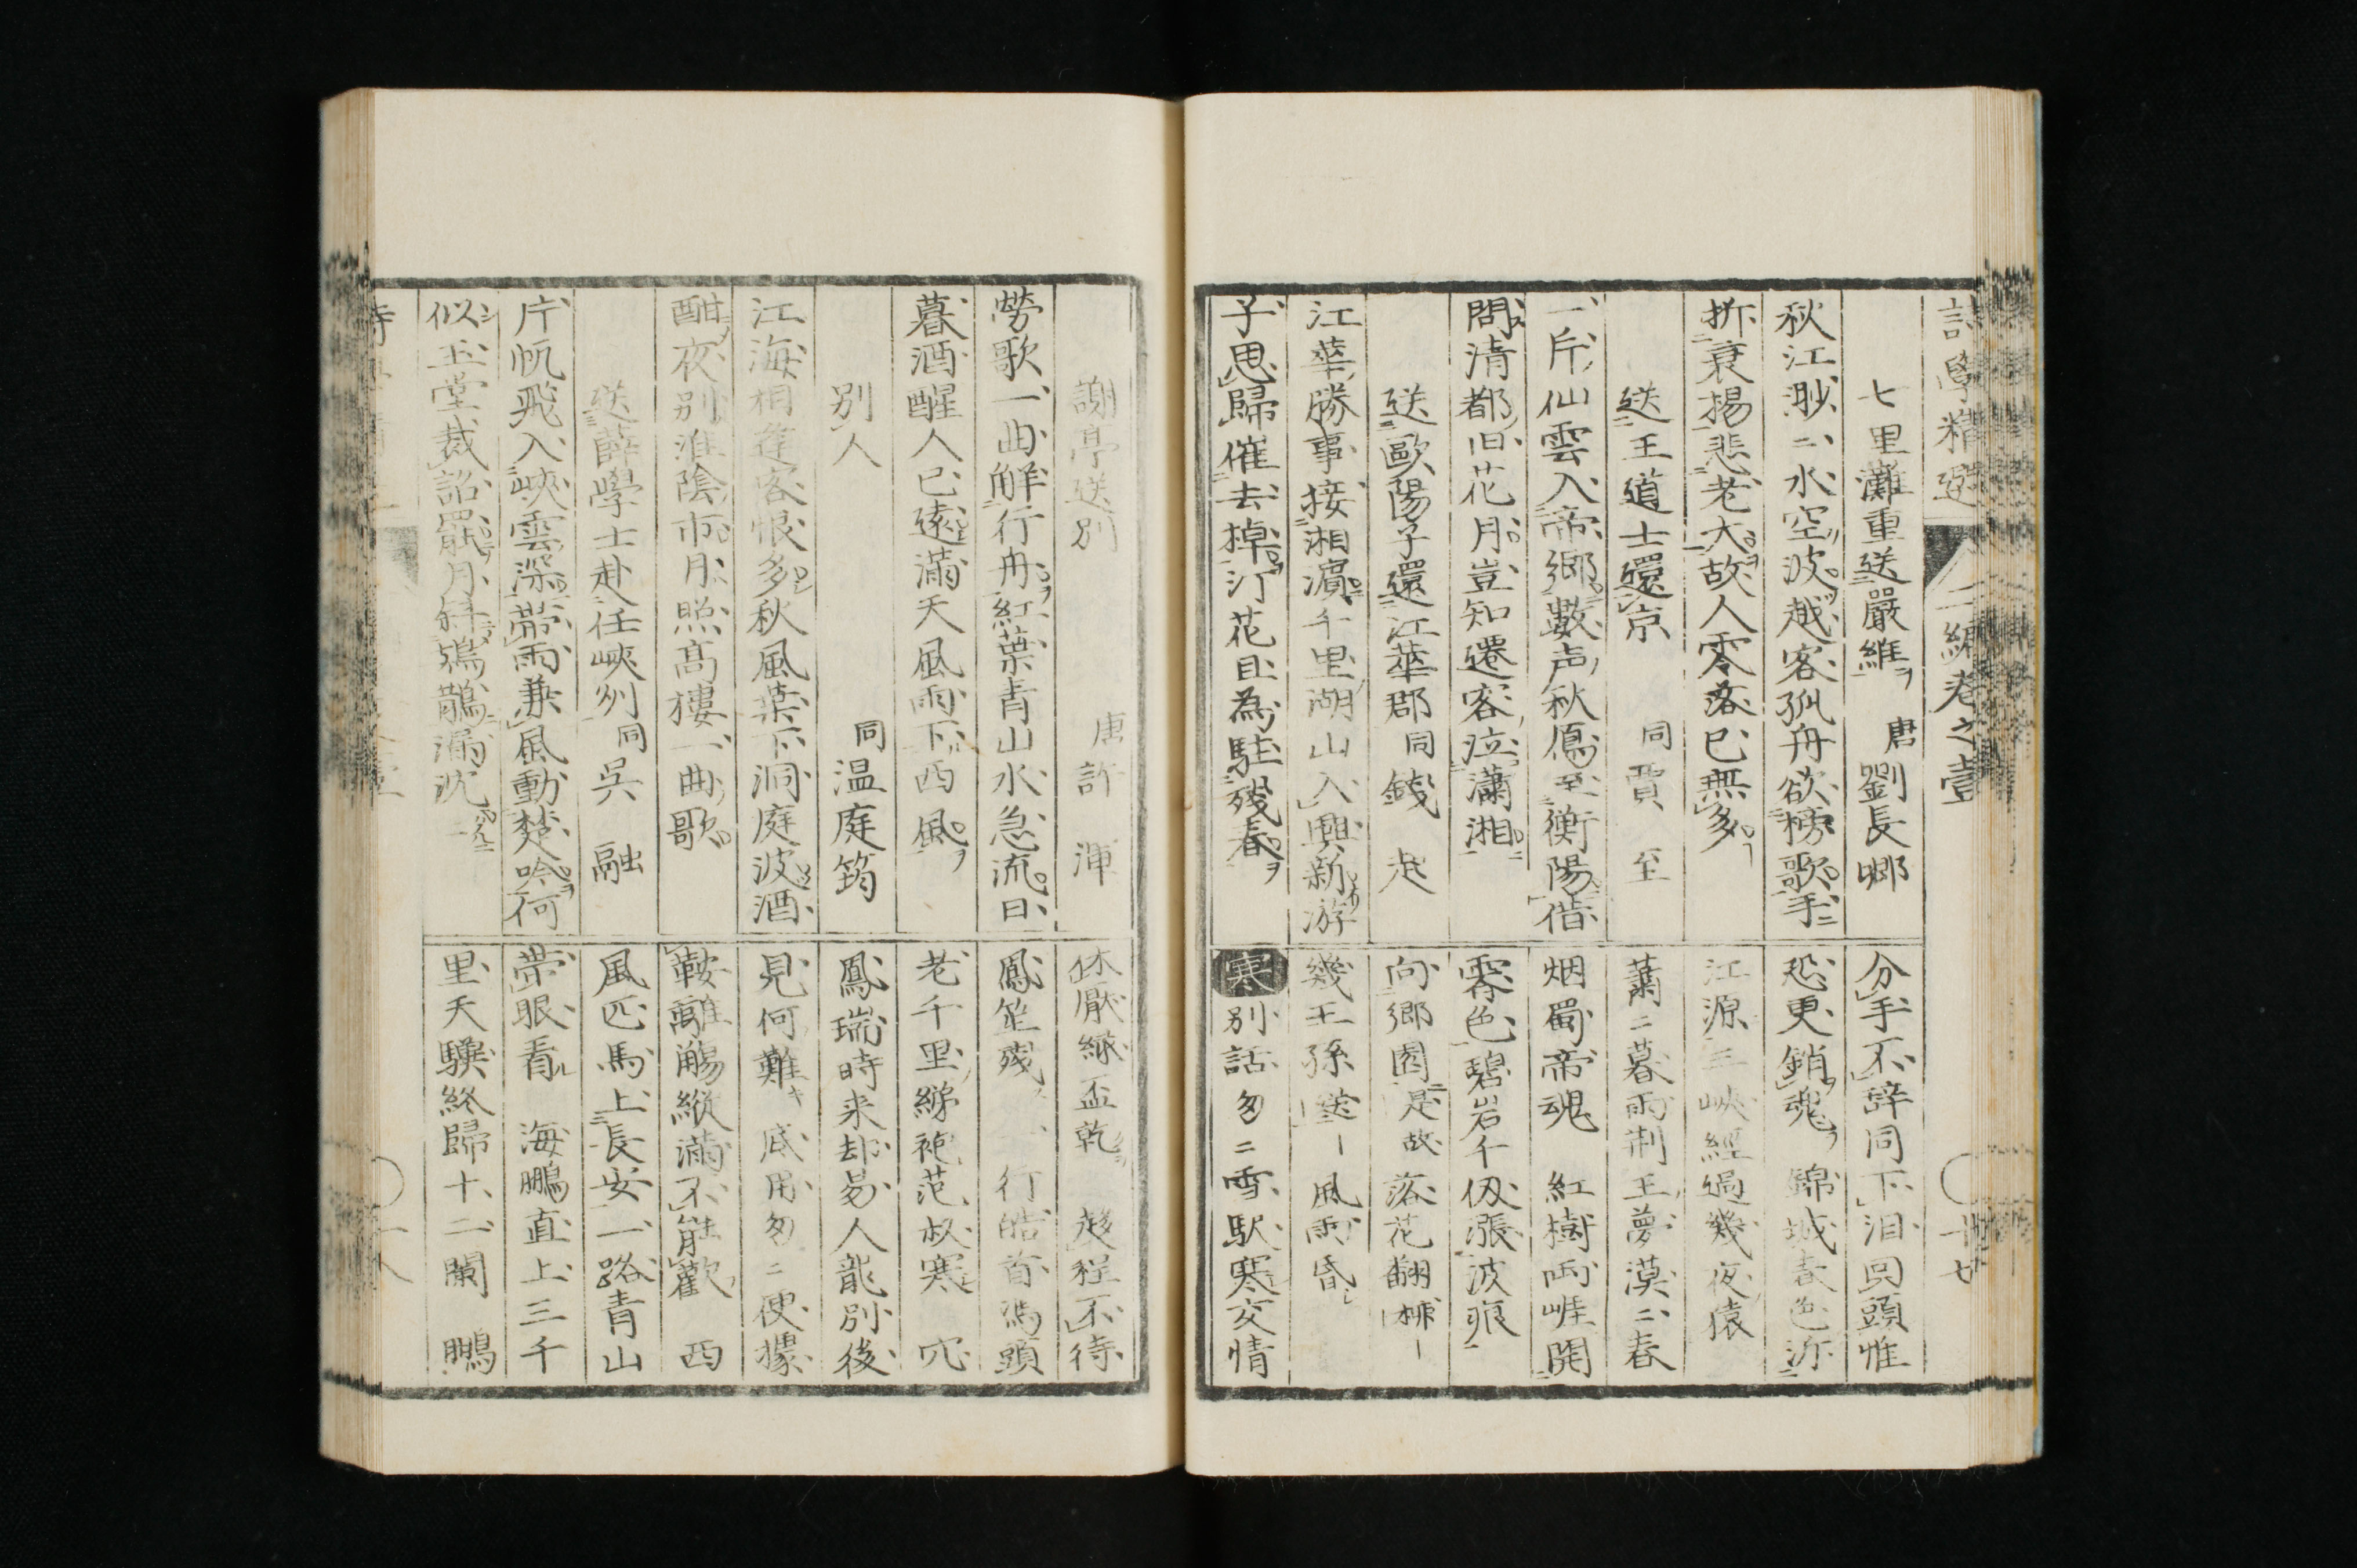 詩學精選 二編卷之壹 十七
七里灘重送嚴維 唐劉長卿
秋江渺二水空波越客孤舟欲榜歌手
折衰楊悲老大故人零落已無多
送王道士還京 同賈至
一片仙雲入帝鄉數声秋鴈至衡陽借
問清都旧花月豈知遷客泣瀟湘
送歐陽子還江華郡 同錢起
江華勝事接湘濵千里湖山入興新游
子思歸催去棹汀花且為駐殘春
分手不辞同下泪回頭惟
恐更銷魂 錦城春色泝
江源三峽經過幾夜猿
蕭二暮雨荆王夢漠二春
烟蜀帝魂 紅樹両崕開
霽色碧岩千仭漲波痕
向郷園是故落花翻
幾王孫送一風雨昏
寒 別話匆二雪馭寒交情
謝亭送別 唐許渾
勞歌一曲解行舟紅葉青山水急流日
暮酒醒人已遠滿天風雨下西風
別人 同温庭筠
江海相逢客恨多秋風葉下洞庭波酒
酣夜別淮陰市月照髙樓一曲歌
送薛學士赴任峽州 同呉融
片帆飛入峽雲深帶雨兼風動楚吟何
似玉堂裁詔罷月斜鳷鵲漏沈一
休厭綠盃乾 趁程不待
鳳笙殘 行皓首馮頭
老千里綈袍范叔寒 冗
鳳瑞時来却易人龍別後
見何難 底用匆二便據
鞍離觴縱滿不能歡 西
風匹馬上長安一路青山
帶眼看 海鵬直上三千
里天驥終歸十二閑 鵬
十八